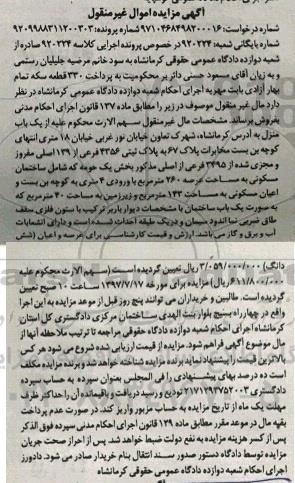 آگهی مزایده اموال غیرمنقول
شماره درخواست: ۹۷۱۰۴۶۸۴۹۸۲۰۰۰۱۶ شماره پرونده: ۹۲۰۹۹۸۸۳۱۱۲۰۰۳۰۳
شماره بایگانی شعبه: ۹۲۰۲۲۴ در خصوص پرونده اجرایی کلاسه ۹۲۰۲۲۴ صادره از
شعبه دوازده دادگاه عمومی حقوقی کرمانشاه به سود خانم مرضیه جلیلیان رستمی
و به زیان آقای مسعود حسنی دائر بر محکومیت به پرداخت ۳۳۰ قطعه سکه تمام
بهار آزادی بابت مهریه اجرای احکام شعبه دوازده دادگاه عمومی کرمانشاه در نظر
دارد مال غیر منقول موصوف در زیر را مطابق ماده ۱۳۷ قانون اجرای احکام مدنی
بفروش برساند. مشخصات مال غیرمنقول سهم الارث محکوم علیه از یک باب
منزل به آدرس کرمانشاه، شهرک تعاون خیابان نور غربی خیابان ۱۸ متری انتهای
کوچه بن بست مخابرات پلاک ۶۷ به پلاک ثبتی ۴۳۵۶ فرعی از ۱۳۹ اصلی مفروز
و مجزی شده از ۲۴۹۵ فرعی از اصلی مذکور بخش یک حومه که شامل ساختمان
مسکونی به مساحت عرصه ۲۶۰ مترمربع با ورودی ۴ متری به کوچه بن بست و
اعیان مسکونی به مساحت ۱۴۳ مترمربع و زیرزمین به مساحت ۴۰ مترمربع که
به صورت یک باب ساختمان با مشخصات دیوار باربر ترکیب با ستون فلزی سقف
طاق ضربی نما اندود سیمان و دریک طبقه احداث شده است و دارای انشعابات
آب و برق و گاز می باشد. ارزش و قیمت کارشناسی برای عرصه و اعیان (شش
دانگ) ۳/۰۵۹/۰۰۰/۰۰۰ ریال تعیین گردیده است (سهم الارث محکوم علیه
۶۱۱/۸۰۰/۰۰۰ ریال) مزایده برای مورخه ۱۳۹۷/۷/۱۷ ساعت ۱۰ صبح تعیین
گردیده است. طالبین و خریداران می توانند پنج روز قبل از موعد مزایده به این اجرا
واقع در چهارراه بسیج بلوار بنت الهدی ساختمان مرکزی دادگستری کل استان
کرمانشاه اجرای احکام شعبه دوازده دادگاه حقوقی مراجعه تا ترتیب ملاحظه آنها از
مال موضوع آگهی فراهم شود. مزایده از قیمت ارزیابی شده شروع می شود هر کس
بالاترین قیمت را پیشنهاد نماید برنده مزایده شناخته خواهد شد و برنده مزایده مکلف
است ده درصد بهای پیشنهادی را فی المجلس بعنوان سپرده به حساب سپرده
دادگستری ۲۱۷۱۲۹۳۷۵۲۰۰۳ تودیع و رسید دریافت و باقیمانده آن را حداکثر ظرف
مهلت یک ماه از تاریخ مزایده به حساب مزبور واریز کند. در صورت عدم پرداخت
بقیه مال در موعد مقرر مطابق ماده ۱۲۹ قانون اجرای احکام مدنی سپرده فوق الذکر
پس از کسر هزینه مزایده به نفع دولت ضبط خواهد شد. پس از احراز صحت جریان
مزایده توسط دادگاه دستور صدور سند انتقال بنام خریدار صادر می شود. دادورز
اجرای احکام شعبه دوازده دادگاه عمومی حقوقی کرمانشاه